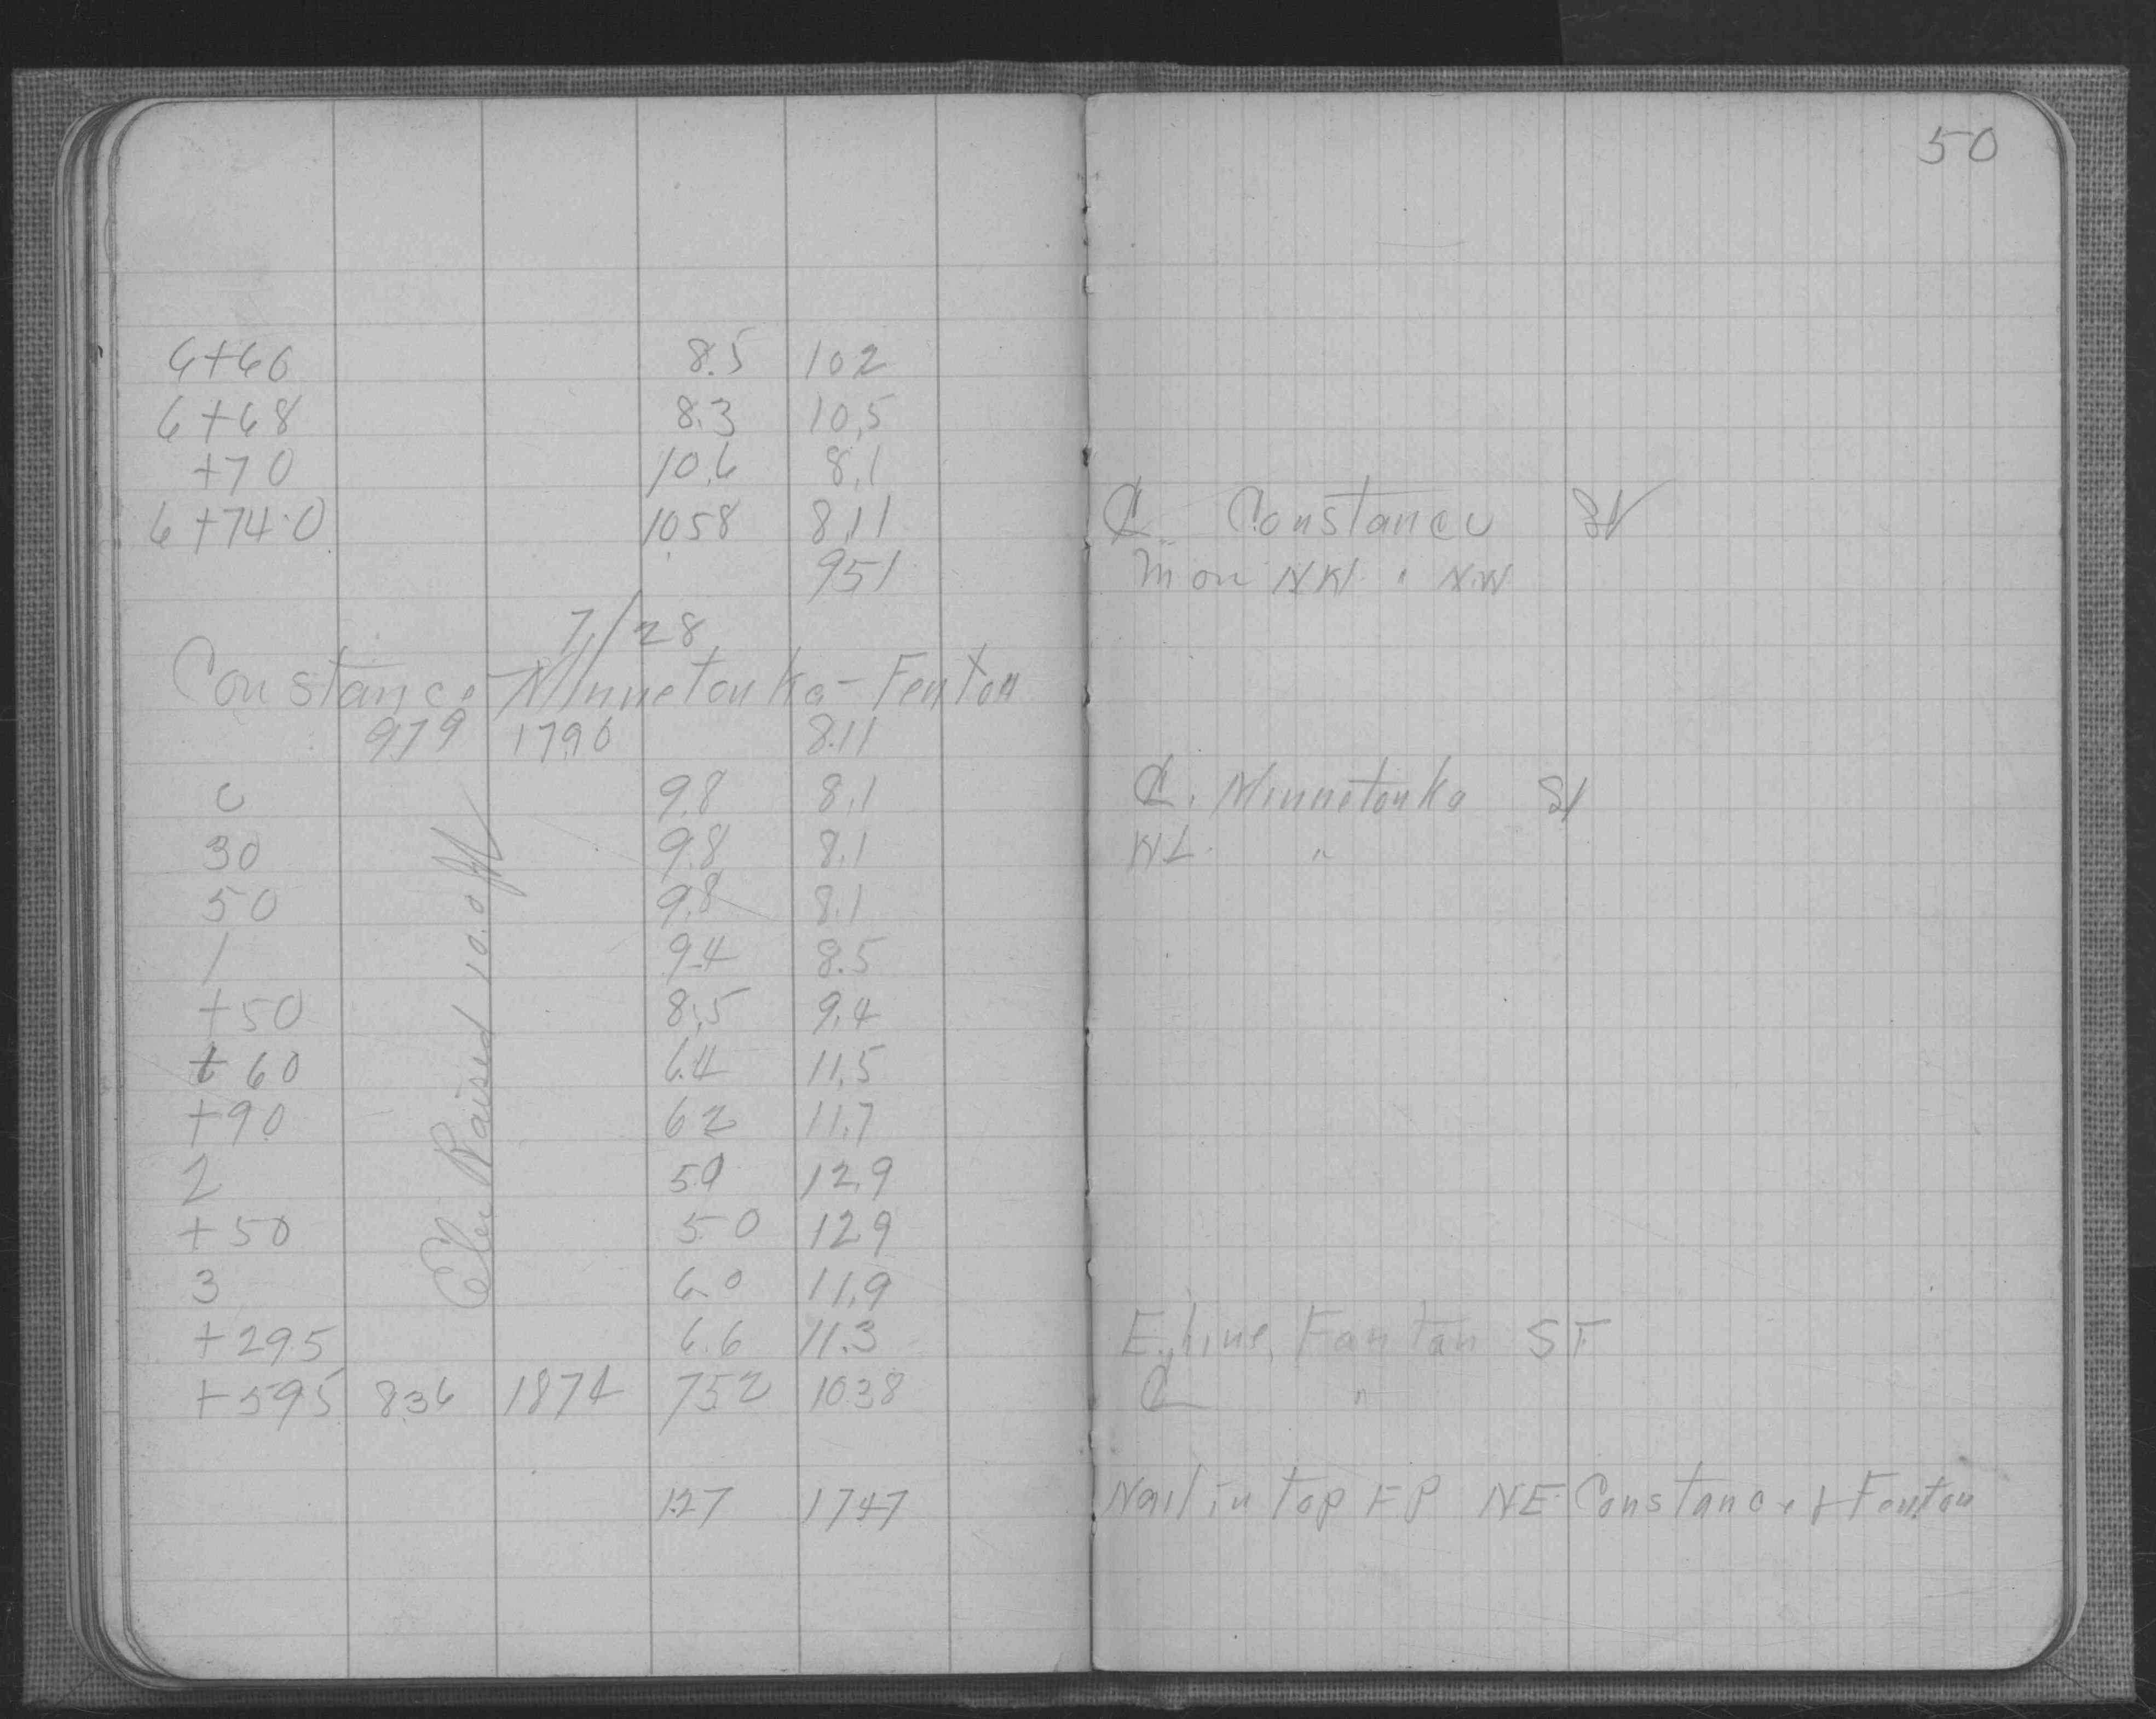 50
6+60 8.5 10.2
6+68 8.3 10.5
+70 10.6 8.1
6+74.0 10.58 8.11 ℄ Constance St
9.51 Mon NW " NW
7/28
Constance-Minnetonka-Fenton
9.79 17.90 8.11
0 9.8 8.1 ℄. Minnetonka St
30 9.8 8.1 WL "
50 9.8 8.1
1 9.4 8.5
+50 8.5 9.4
+60 6.4 11.5
+90 6.2 11.7
2 5.0 12.9
+50 5.0 12.9
3 6.0 11.9
+29.5 6.6 11.3 E. line Fantan ST
+59.5 8.36 18.74 7.52 10.38 ℄ "
1.27 17.47 Nail in top FP NE Constance + Fenton
Elev Raised 10.0 ft